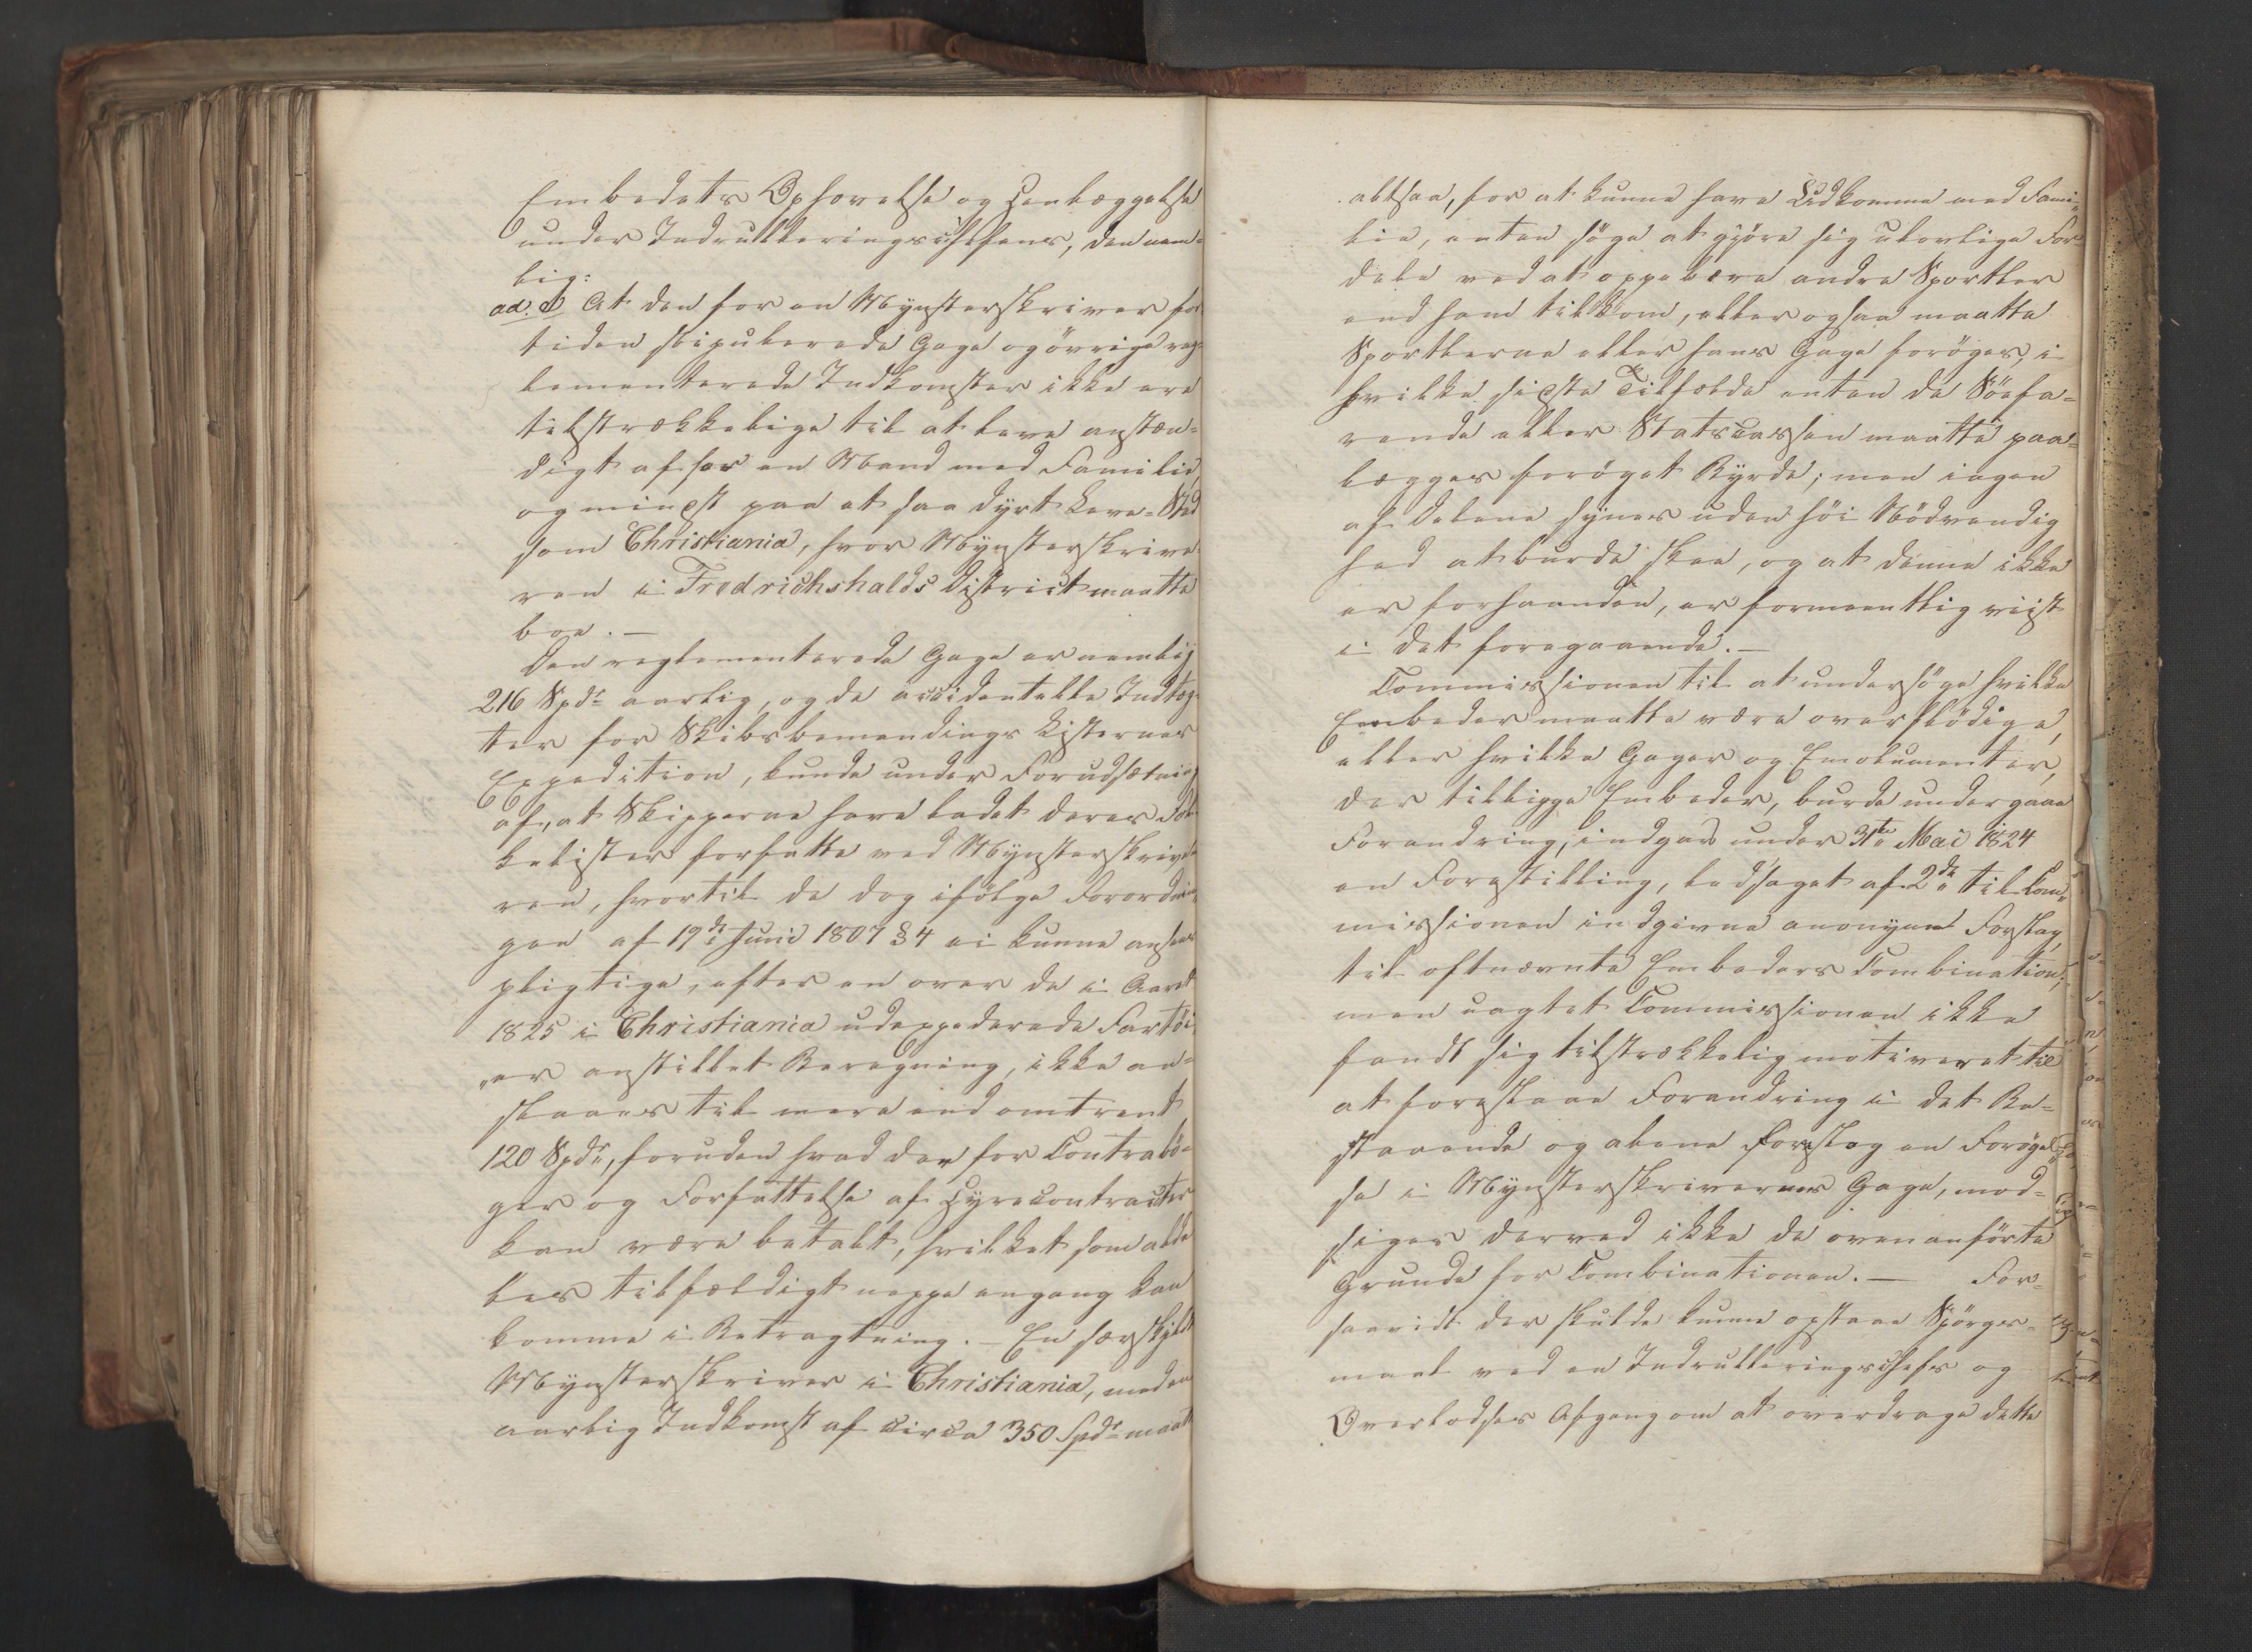 Embedets Ophævelse og Henlæggelse
under Indrulleringschefens, den nem-
lig:
ad. d At den for en Mynsterskriver for
tiden stipulerede Gage og övrige reg-
lementerede Indkomster ikke ere
tilstrækkelige til at leve anstæn-
digt af for en Mand med Familie,
og mindst paa et saa dyrt Leve-Sted
som Christiania, hvor Mynsterskrive
ren i Fredrichshalds District maatte
boe. —
Den reglementerede Gage er nemlig
216 Spdr aarlig, og de accidentelle Indtæg-
ter for Skibsbemandings Listernes
Expedition, kunde under Forudsætning
af, at Skipperne have ladet deres Fol-
kelister forfatte ved Mynsterskrive
ren, hvortil de dog ifölge Forordnin-
gen af 19de Junii 1807 § 4 ei kunne ansees
pligtige, efter en over de i Aaret
1825 i Christiania udexpederede Fartöi-
er anstillet Beregning, ikke an-
slaaes til mere end omtrent
120 Spdr, foruden hvad der for Contrabö-
ger og Forfattelse af Hyrecontracter
kan være betalt, hvilket som alde
les tilfældigt neppe engang kan
komme i Betragtning. — En særskilt
Mynsterskriver i Christiania, med en
aarlig Indkomst af circa 350 Spdr maatte
altsaa, for at kunne have Udkomme med Fami-
lie, enten söge at gjöre sig ulovlige For-
dele ved at oppebære andre Sportler
end ham tilkom, eller ogsaa maatte
Sportlerne eller hans Gage foröges, i
hvilke sidste Tilfælde enten de Söefa-
rende eller Statscassen maatte paa-
lægges foröget Byrde; men ingen
af Delene synes uden höi Nödvendig
hed at burde skee, og at denne ikke
er forhaanden, er formeentlig viist
i det foregaaende. —
Commissionen til at undersöge hvilke
Embeder maatte være overflödige,
eller hvilke Gager og Emolumenter,
der tillægges Embeder, burde undergaae
Forandring, indgav under 31te Mai 1824
en Forestilling, ledsaget af 2de til Com-
missionen indgivne anonyme Forslag
til oftnævnte Embeders Combination;
men uagtet Commissionen ikke
fandt sig tilstrækkelig motiveret til
at foreslaae Forandring i det Be-
staaende og alene foreslog en Forögel-
se i Mynsterskrivernes Gage, mod-
siges derved ikke de ovenanförte
Grunde for Combinationen. — For-
saavidt der skulde kunne opstaae Spörgs-
maal ved en Indrulleringschefs og
Overlodses Afgang om at overdrage dette